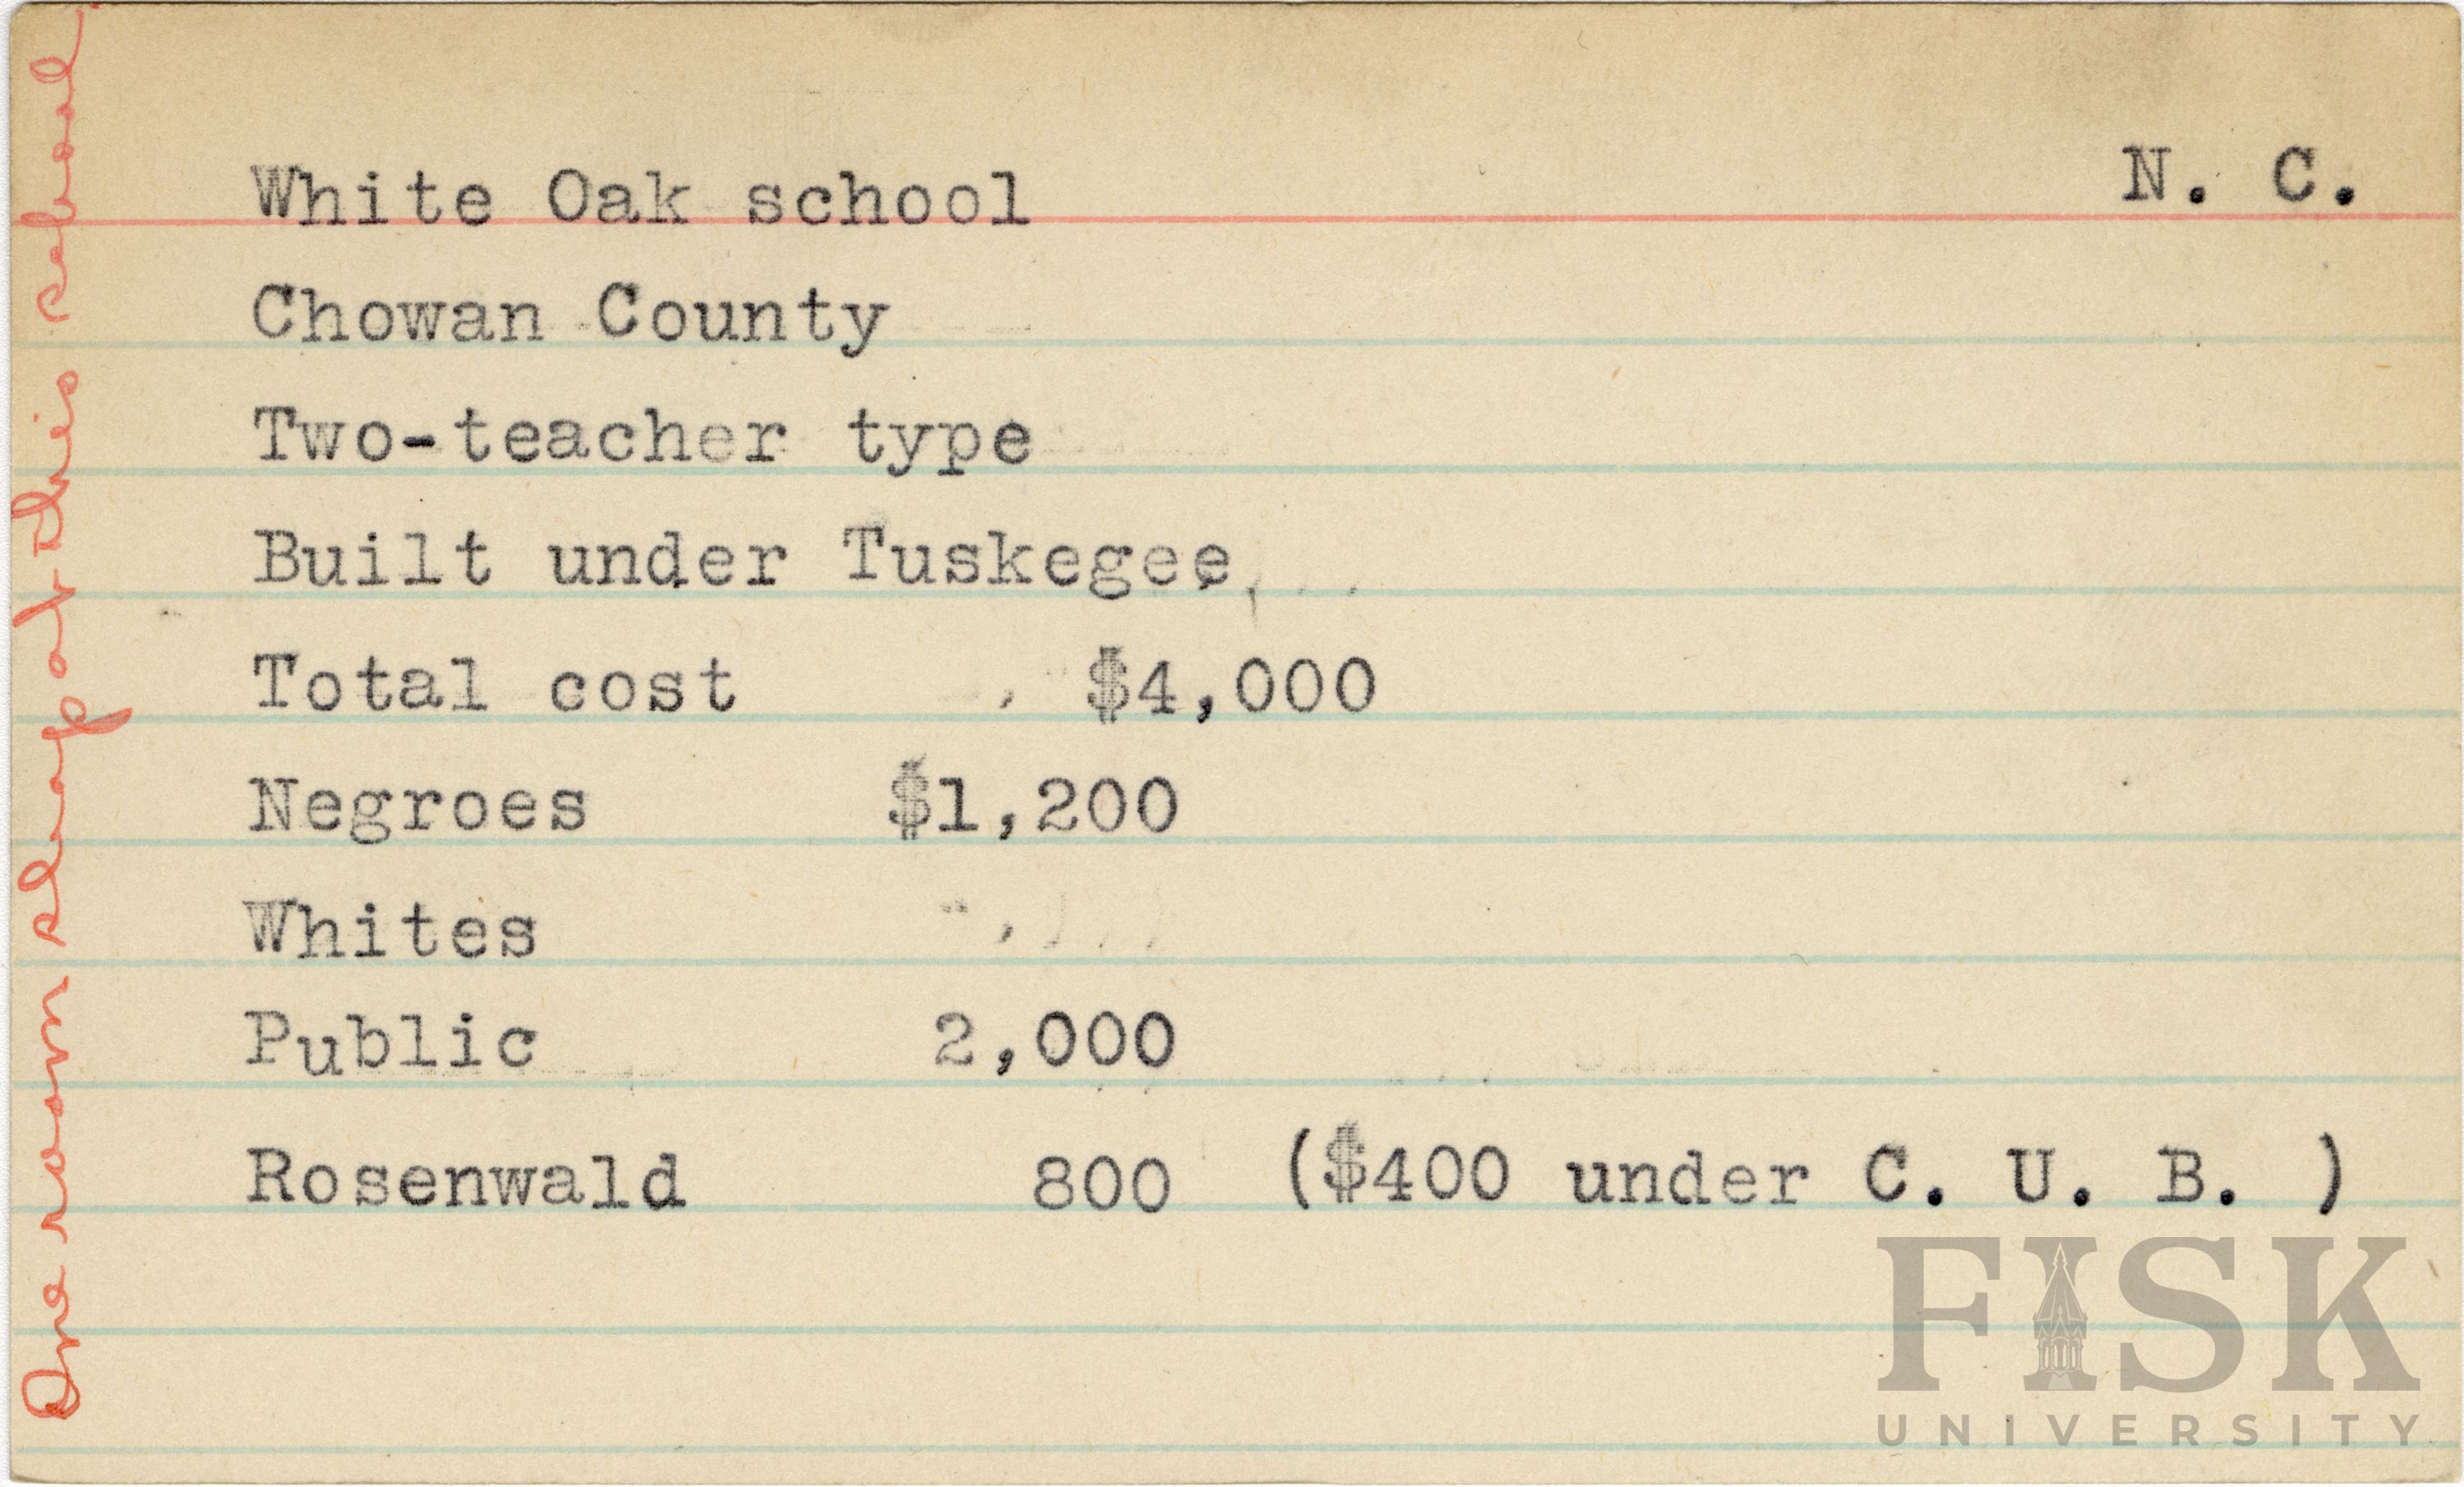 White Oak school N. C.
Chowan County
Two-teacher type
Built under Tuskegee
Total cost $4,000
Negroes $1,200
Whites
Public 2,000
Rosenwald 800 ($400 under C. U. B. )
One room shop at this school
FISK
UNIVERSITY